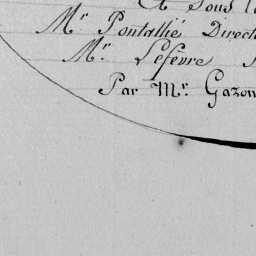 Et sous l
Mr Pontallié Direct
Mr. Lefèvre
Par Mr. Gazon